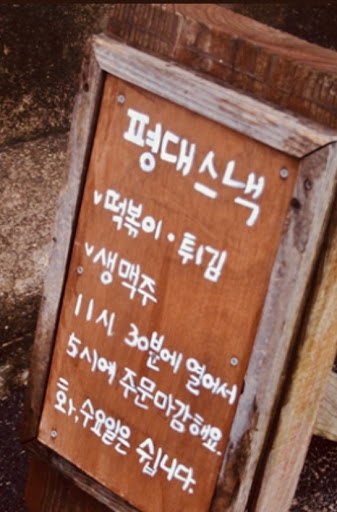 평대스낵
v떡볶이·튀김
v생맥주
11시 30분에 열어서
5시에 주문마감해요.
화,수요일은 쉽니다.